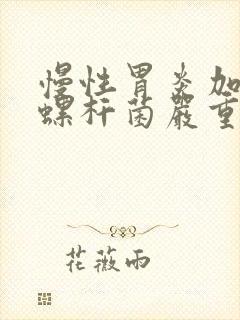 慢性胃炎加
螺杆菌嚴重
花薇雨